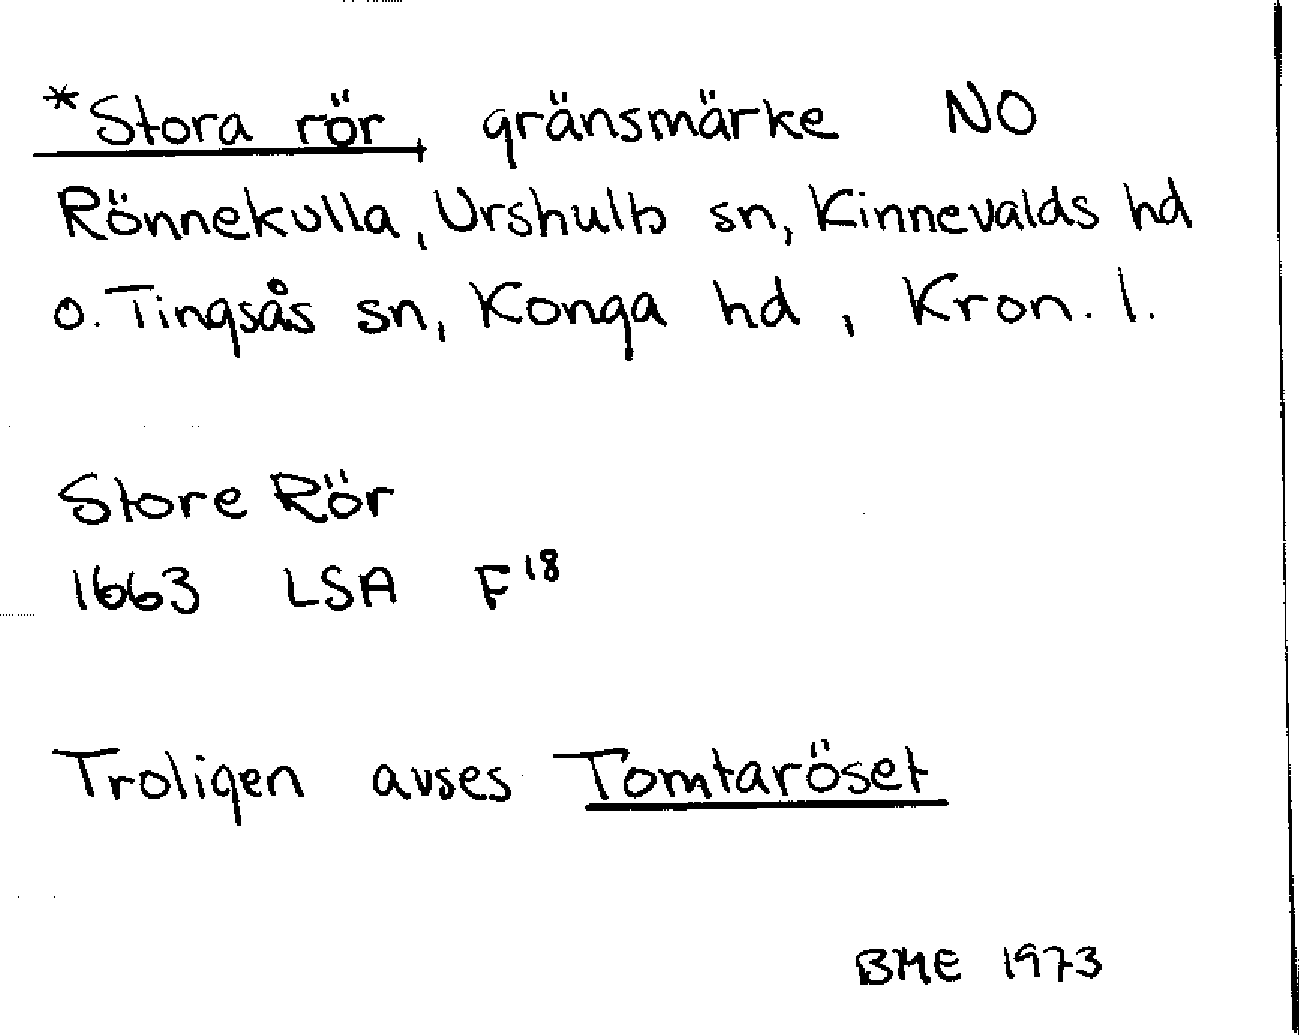 *Stora rör, gränsmärke NO
Rönnekulla, Urshult sn, Kinnevalds hd
o. Tingsås sn, Konga hd, Kron. l.
Store Rör
1663 LSA F18
Troligen avses Tomtaröset
BME 1973